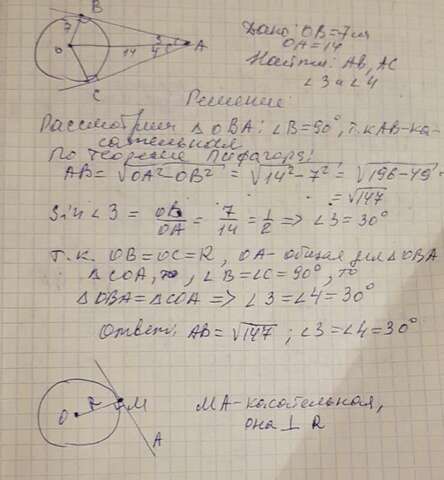 B
7
O
14
3
4
A
C
Дано: OB=7см
OA=14
Найти: AB, AC
∠3 и ∠4
Решение:
Рассмотрим △OBA: ∠B=90°, т.к AB-ка-
сательная
По теореме Пифагора:
AB=√OA²-OB² = √14²-7² = √196-49 =
=√147
Sin∠3 = OB/OA = 7/14 = 1/2 ⇒ ∠3=30°
т.к. OB=OC=R, OA- общая для △OBA
и △COA, то, ∠B=∠C=90°, то
△OBA=△COA ⇒ ∠3=∠4=30°
Ответ: AB=√147; ∠3=∠4=30°
O
M
A
MA-касательная,
она ⊥ R